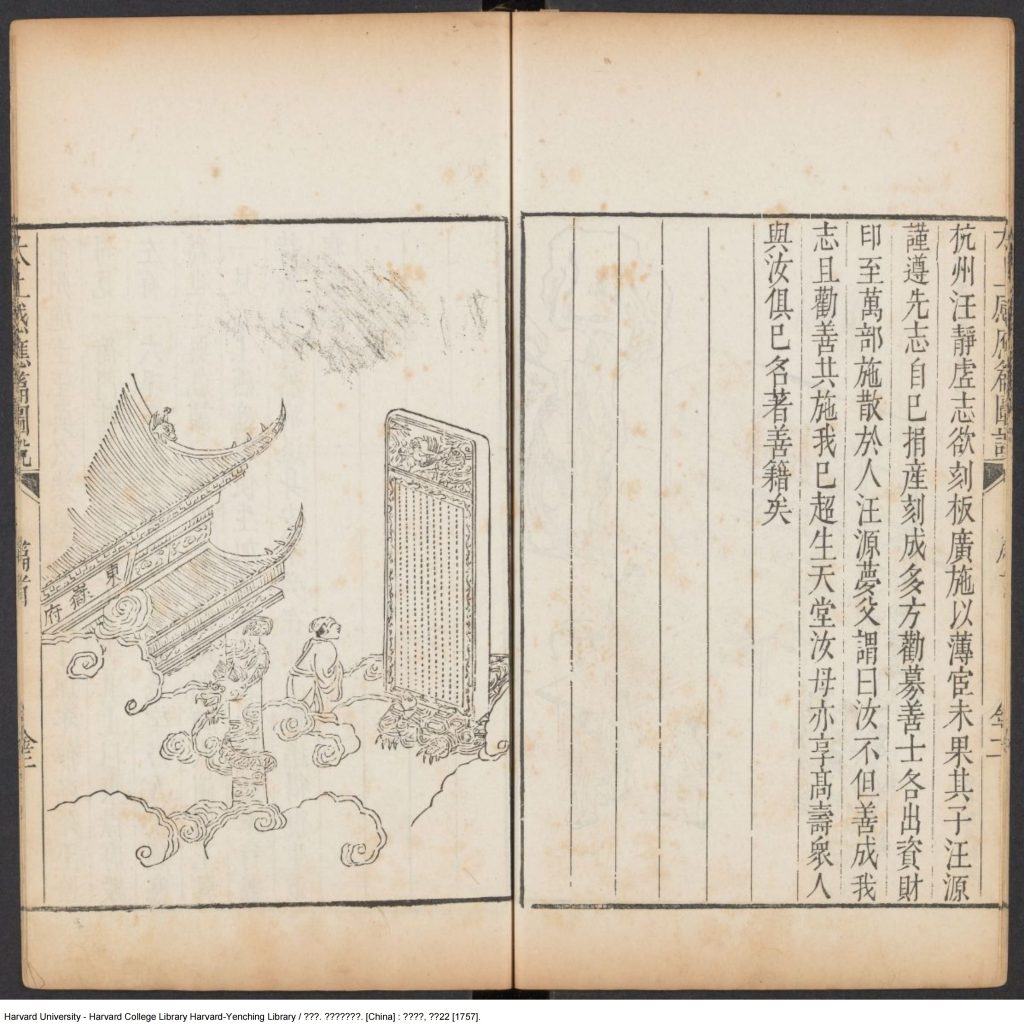 太上感應篇圖說
杭州汪靜虛志欲刻板廣施以薄宦未果其子汪源
謹遵先志自巳捐産刻成多方勸募善士各出資財
印至萬部施散於人汪源夢父謂曰汝不但善成我
志且勸善共施我巳超生天堂汝母亦享髙壽衆人
與汝俱巳名著善籍矣
東嶽府
太上感應篇圖說
篇首
Harvard University - Harvard College Library Harvard-Yenching Library / ???. ???????. [China] : ????, ??22 [1757].